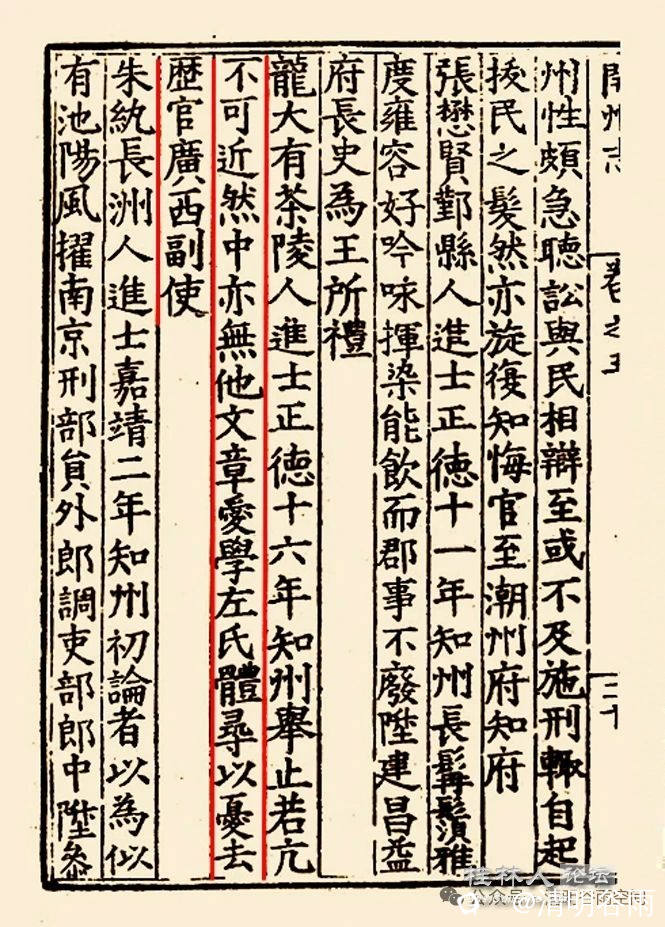 開州志 卷之五
州性頗急聽訟與民相辯至或不及施刑輙自起
捘民之髮然亦旋復知悔官至潮州府知府
張懋賢鄞縣人進士正德十一年知州長髯鬚雅
度雍容好吟咏揮染能飲而郡事不廢陞建昌益
府長史為王所禮
龍大有茶陵人進士正德十六年知州舉止若亢
不可近然中亦無他文章愛學左氏體尋以憂去
歴官廣西副使
朱紈長洲人進士嘉靖二年知州初論者以為似
有池陽風擢南京刑部員外郎調吏部郎中陞叅
桂林人论坛
公众号
@清明谷雨